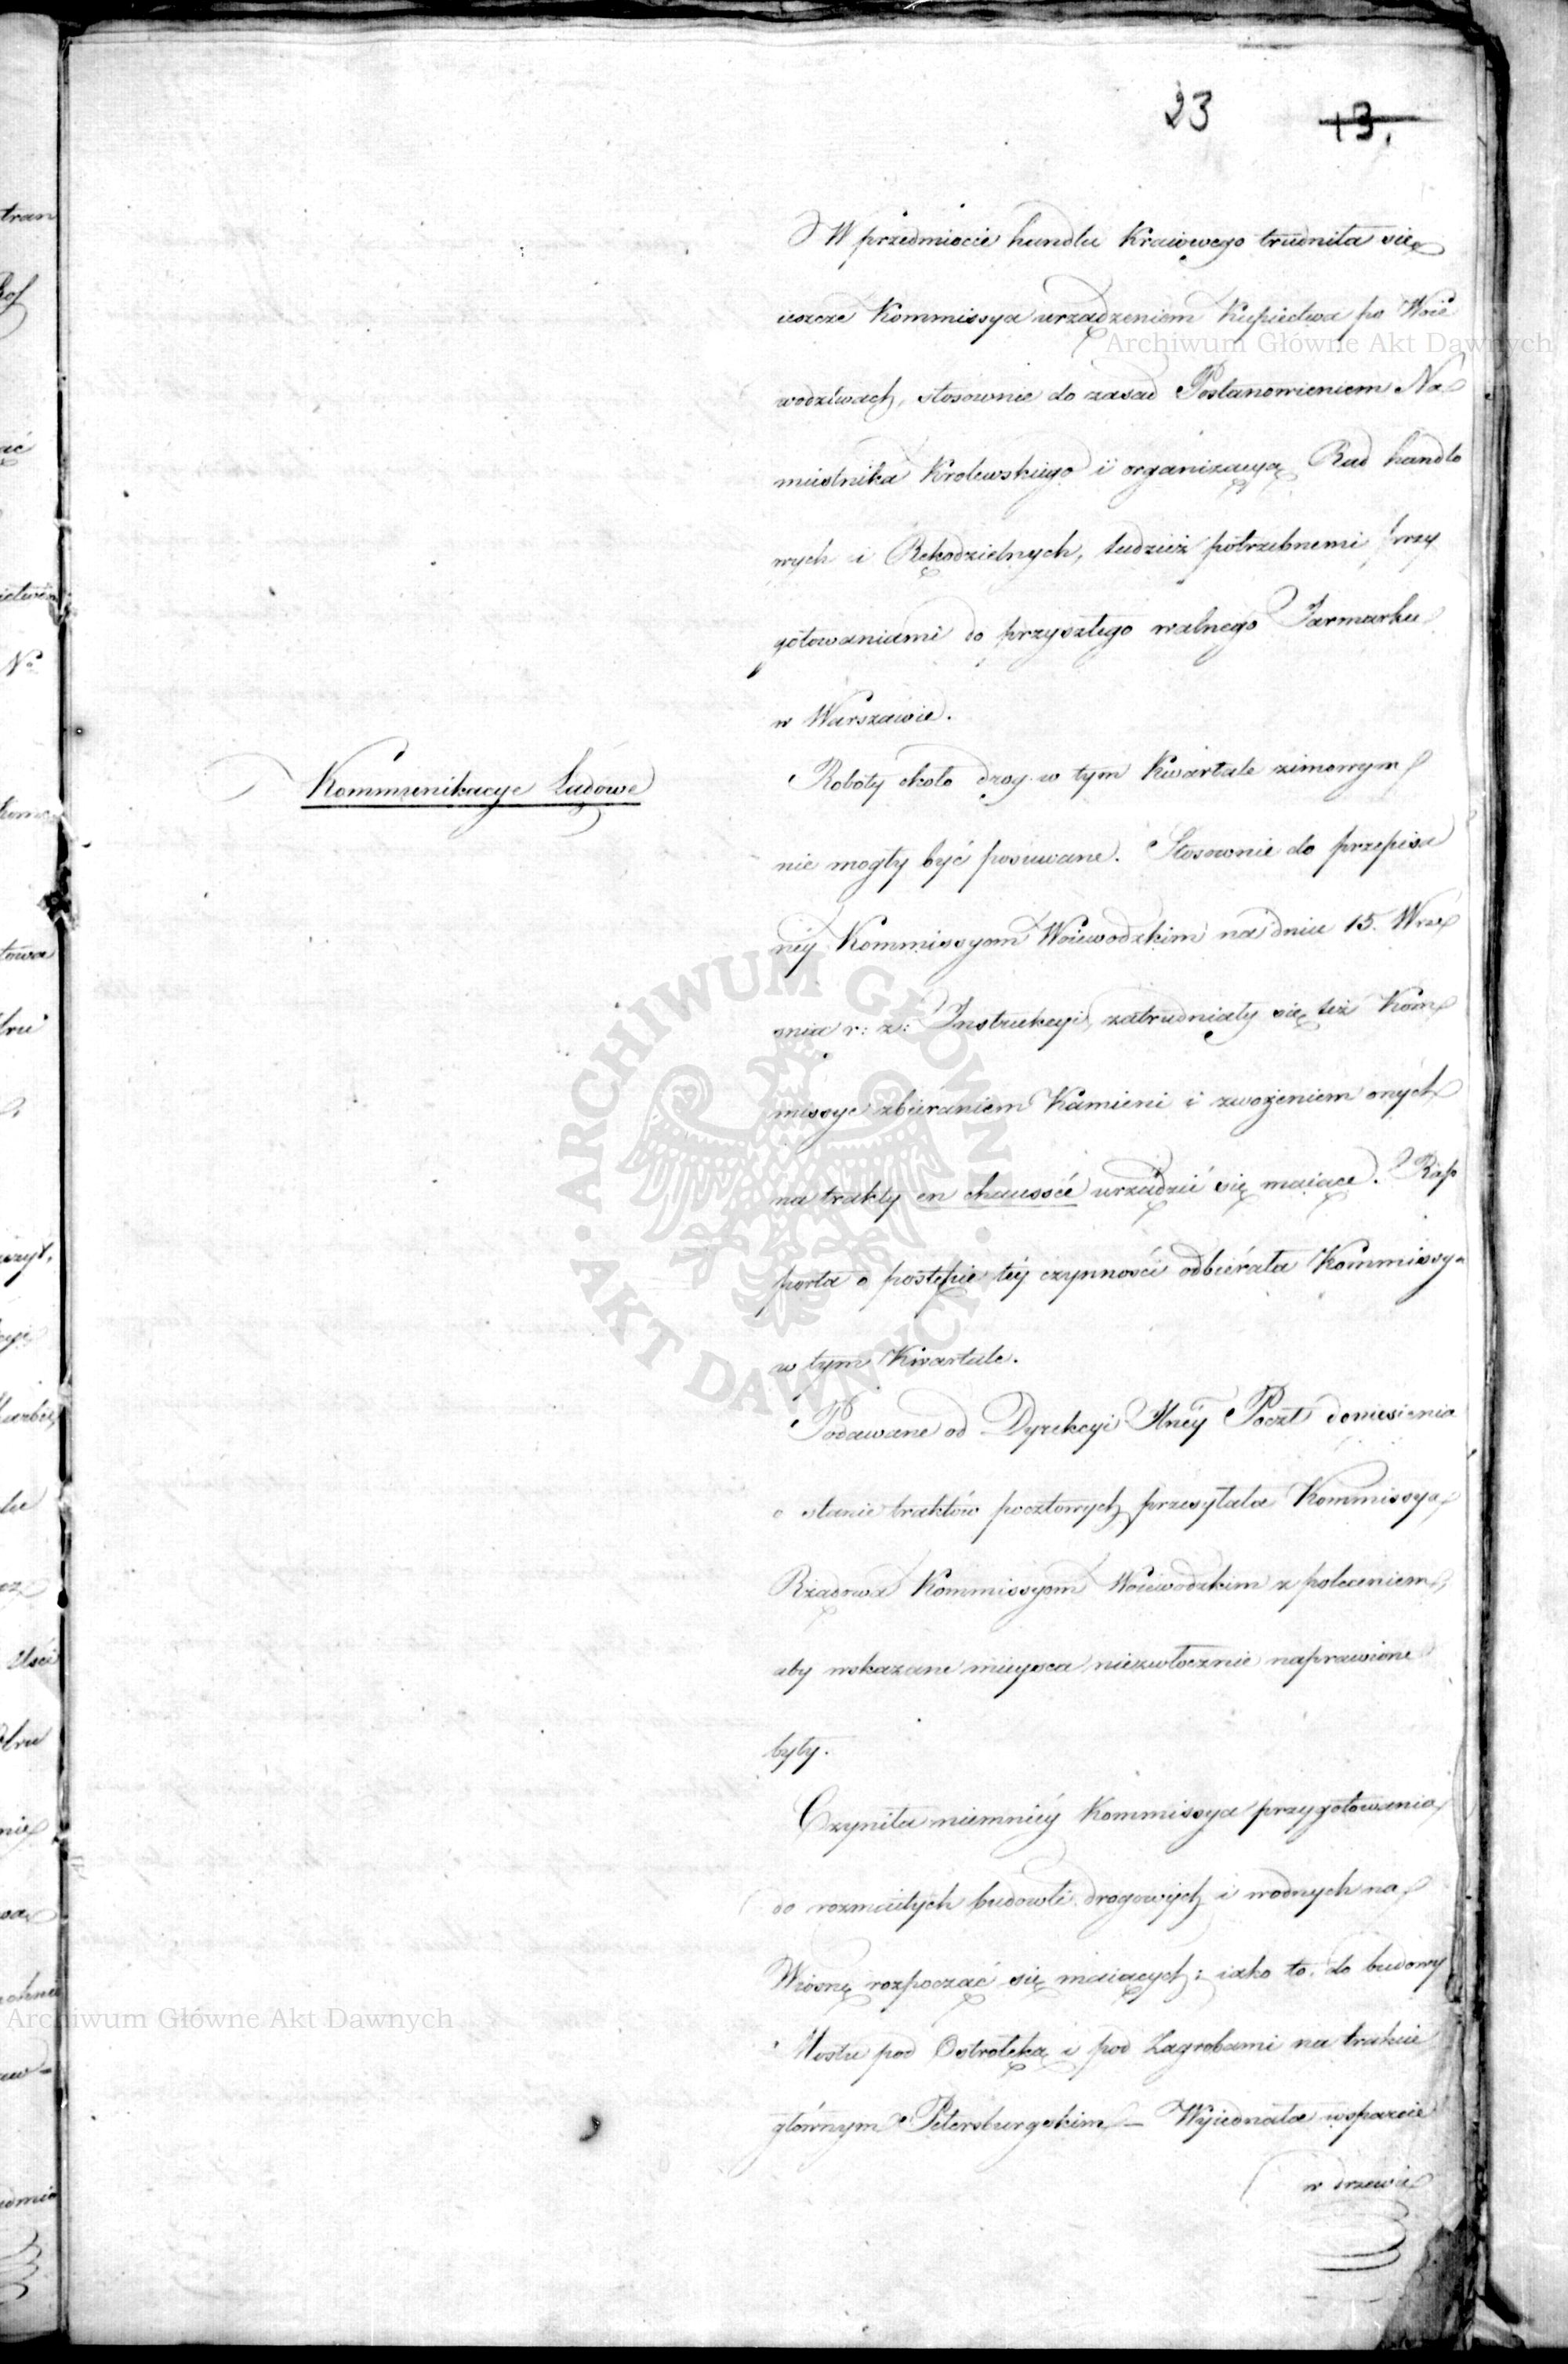 23 13.
W przedmiocie handlu Kraiowego trudniła się
ieszcze Kommissya urządzeniem Kupiectwa po Woie
wodztwach, stosownie do zasad Postanowieniem Na
miestnika Krolewskiego i organizacyą Rad handlo
wych i Rękodzielnych, tudzież potrzebnemi przy
gotowaniami do przyszłego walnego Jarmarku
w Warszawie.
Kommunikacye Lądowe
Roboty około drog w tym Kwartale zimowym
nie mogły być posuwane. Stosownie do przepisa
néy Kommissyom Woiewodzkim na dniu 15. Wrze
snia r: z: Instrukcyi, zatrudniały się też Kom
missye zbieraniem Kamieni i zwożeniem onych
na trakty en chaussée urządzić się maiące. Rap
porta o postępie téy czynności odbiérała Kommissya
w tym Kwartale.
Podawane od Dyrekcyi Jlnéy Poczt doniesienia
o stanie traktów pocztowych przesyłała Kommissya
Rządowa Kommissyom Woiewodzkim z poleceniem,
aby wskazane mieysca niezwłocznie naprawione
były.
Czyniła niemniéy Kommissya przygotowania
do rozmaitych budowli drogowych i wodnych na
Wiosnę rozpocząć się maiących: iako to. do budowy
Mostu pod Ostrołęką i pod Zagrobami na trakcie
głównym Petersburgskim – Wyiednała wsparcie
w drzewie
Archiwum Główne Akt Dawnych
ARCHIWUM GŁÓWNE AKT DAWNYCH
Archiwum Główne Akt Dawnych